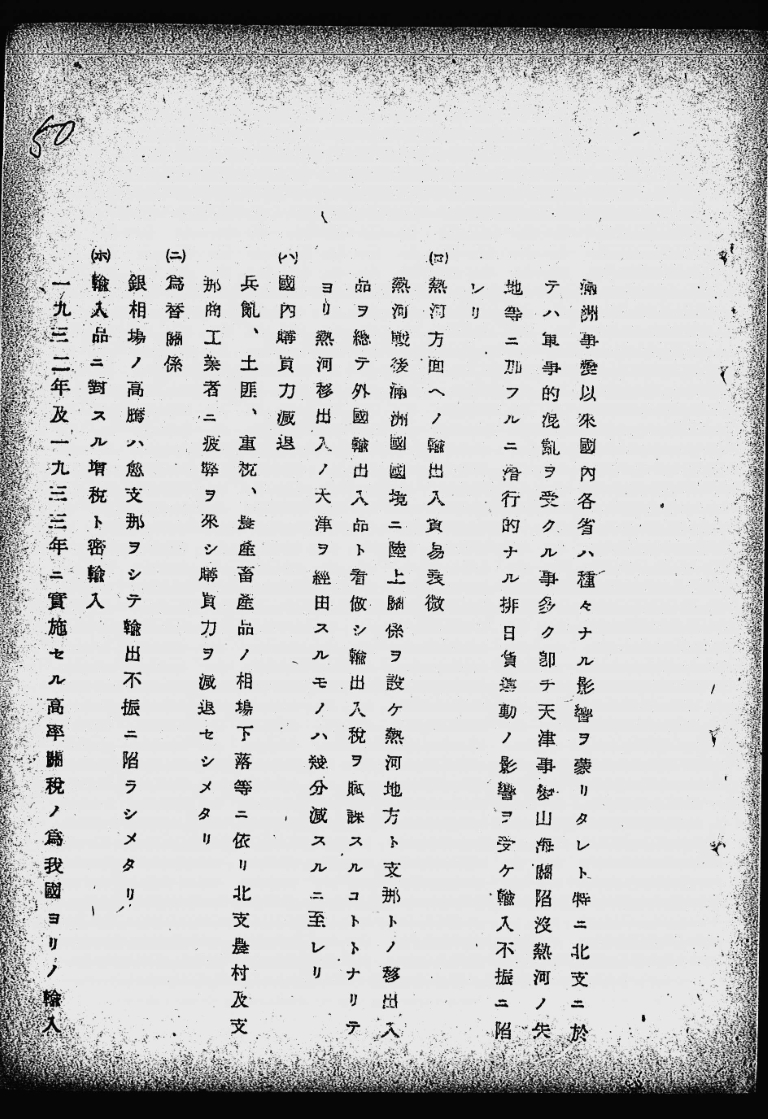 50
滿洲事變以來國內各省ハ種々ナル影響ヲ蒙リタレト特ニ北支ニ於
テハ軍事的混亂ヲ受クル事多ク卽チ天津事變山海關陷沒熱河ノ失
地等ニ加フルニ潛行的ナル排日貨運動ノ影響ヲ受ケ輸入不振ニ陷
レリ
(ロ)熱河方面ヘノ輸出入貿易衰微
熱河戰後滿洲國國境ニ陸上關係ヲ設ケ熱河地方ト支那トノ移出入
品ヲ總テ外國輸出入品ト看做シ輸出入稅ヲ賦課スルコトトナリテ
ヨリ熱河移出入ノ天津ヲ經由スルモノハ幾分減スルニ至レリ
(ハ)國內購買力減退
兵亂、土匪、重稅、農產畜產品ノ相場下落等ニ依リ北支農村及支
那商工業者ニ疲弊ヲ來シ購買力ヲ減退セシメタリ
(ニ)爲替關係
銀相場ノ高騰ハ愈支那ヲシテ輸出不振ニ陷ラシメタリ
(ホ)輸入品ニ對スル增稅ト密輸入
一九三二年及一九三三年ニ實施セル高率關稅ノ爲我國ヨリノ輸入